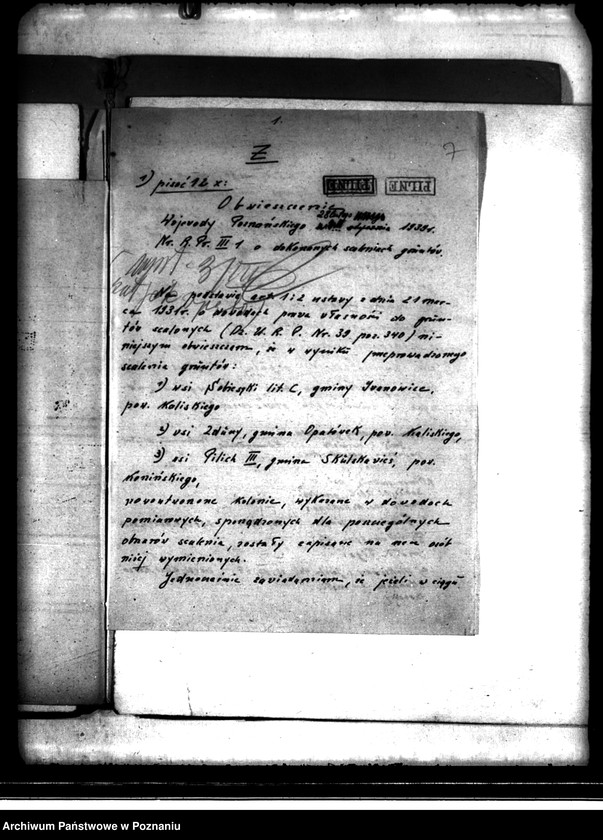 1.
Z
7
1) pisać 12 x:
PILNE
PILNE
Obwieszczenie
Wojewody Poznańskiego stycznia 1939r.
Nr. R. Pr. III 1 o dokonanych scaleniach gruntów.
Na podstawie art 1 i 2 ustawy z dnia 21 mar-
ca 1931r. o dowodach prawa własności do grun-
tów scalonych (Dz. U. R. P. Nr. 39 poz. 340) ni-
niejszym obwieszczam, że w wyniku przeprowadzonego
scalenia gruntów:
1) wsi Sobiesęki lit. C, gminy Iwanowice,
pow. Kaliskiego
2) wsi Zduny, gmina Opatówek, pow. Kaliskiego,
3) wsi Pilich III, gmina Skulska wieś, pow.
Konińskiego,
nowoutworzone kolonie, wykazane w dowodach
pomiarowych, sporządzonych dla poszczególnych
obszarów scalenia, zostały zapisane na rzecz osób
niżej wymienionych.
Jednocześnie zawiadamiam, że jeżeli w ciągu
Archiwum Państwowe w Poznaniu